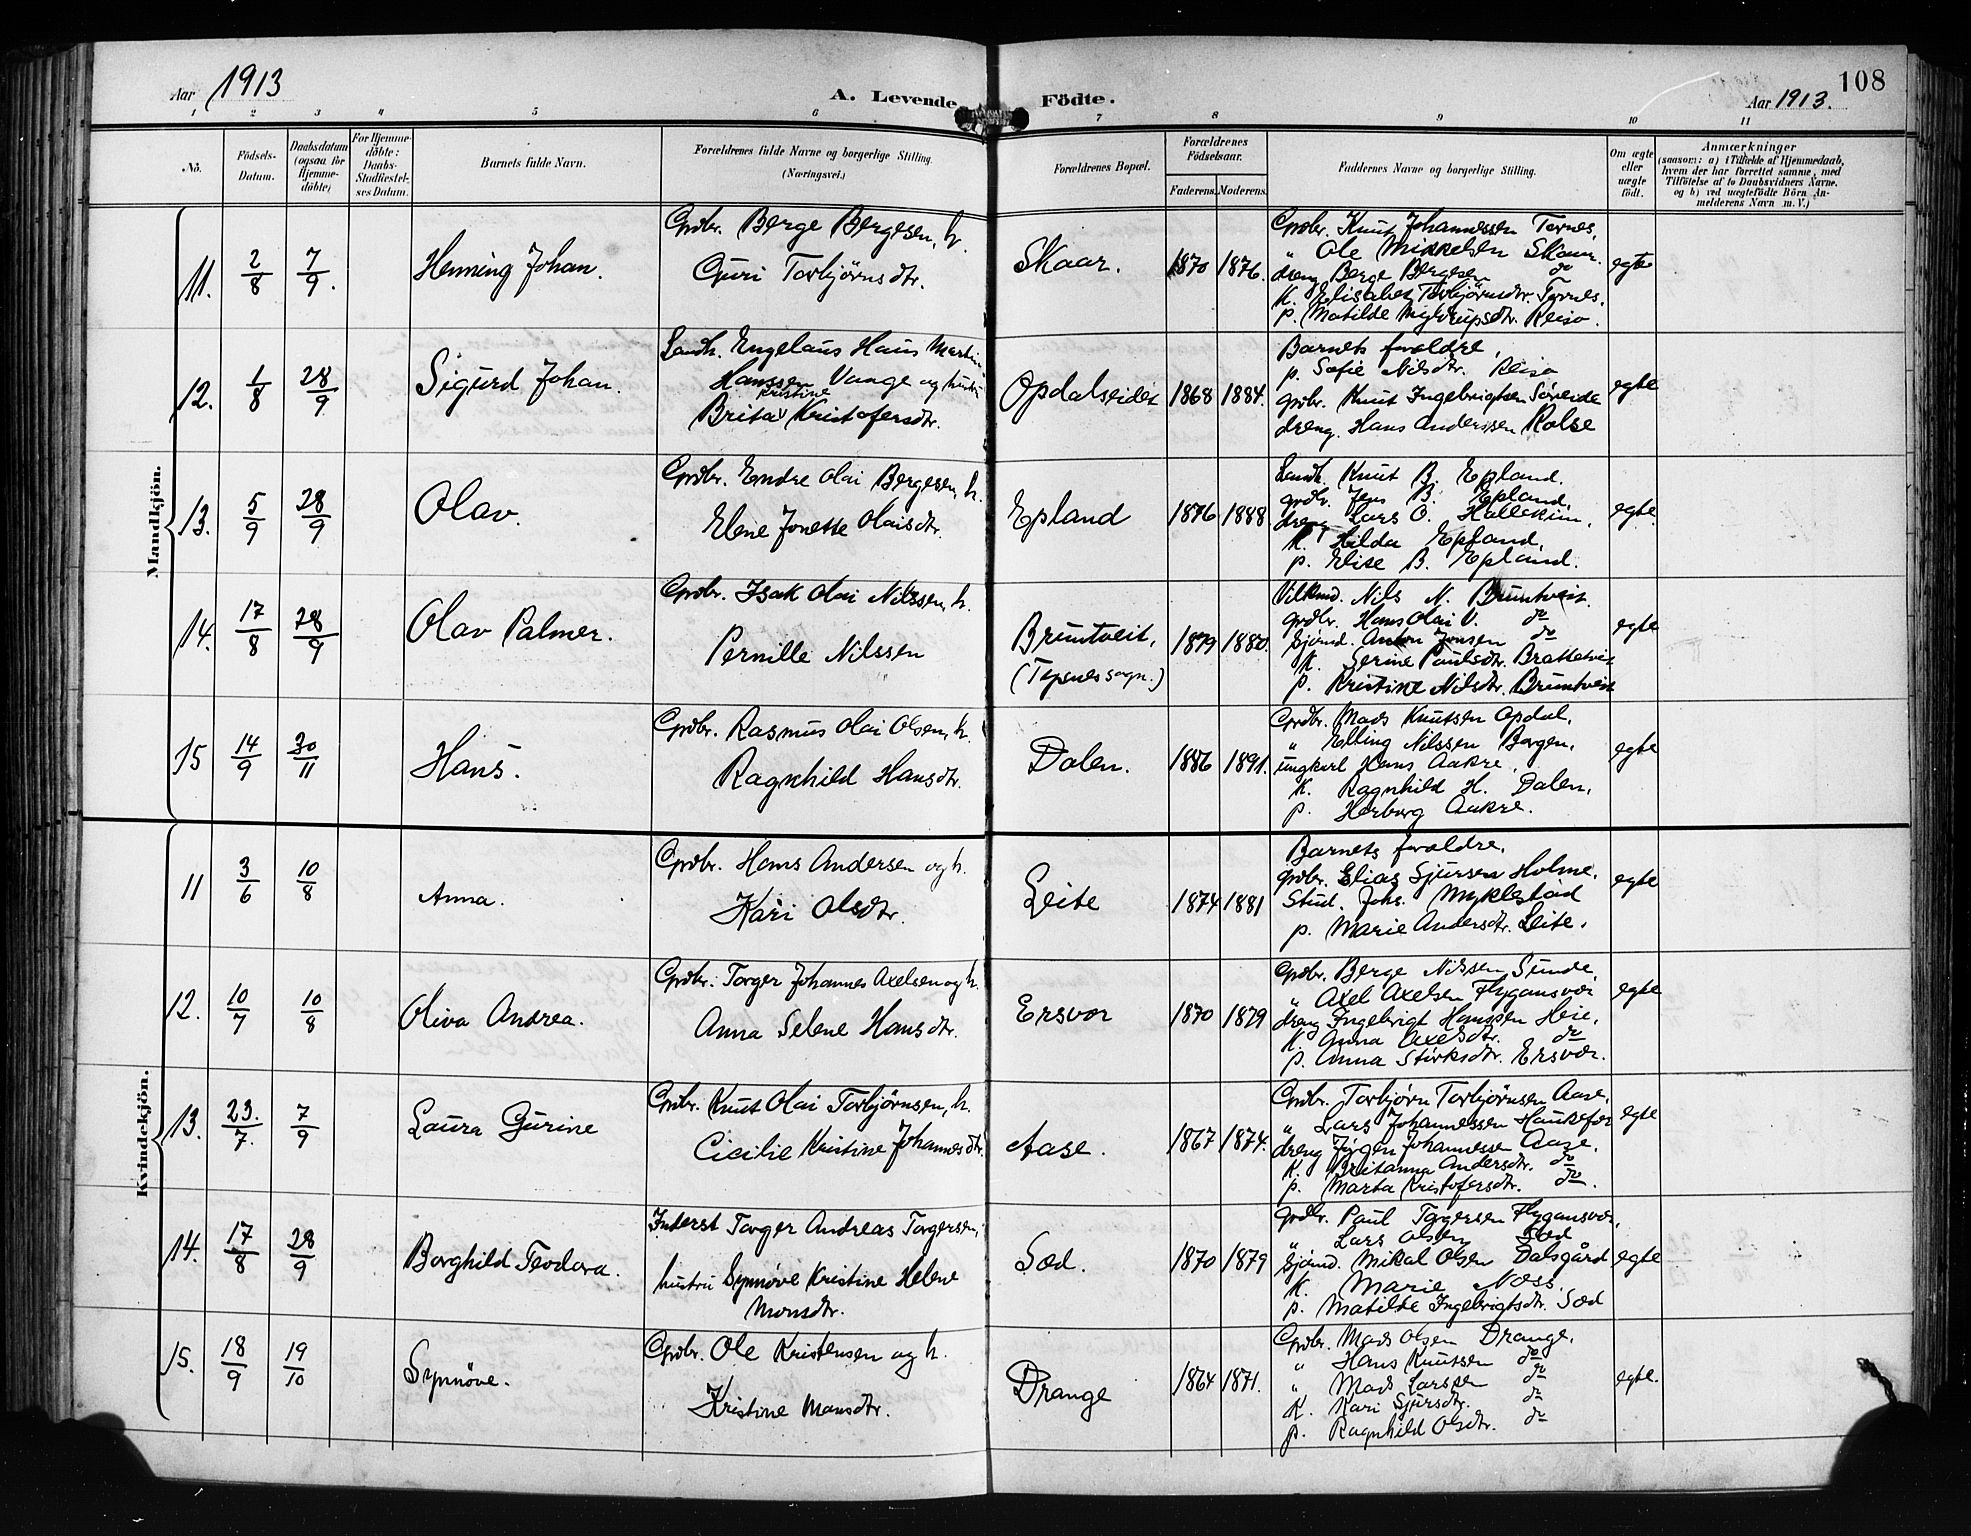 Aar 1913
A. Levende Födte.
Aar 1913.
108
1 2 3 4 5 6 7 8 9 10 11
No.
Födsels-Datum.
Daabsdatum (ogsaa for Hjemme-döbte)
For Hjemme-döbte: Daabs-Stadfæstel-ses Datum.
Barnets fulde Navn.
Forældrenes fulde Navne og borgerlige Stilling.
(Næringsvei.)
Forældrenes Bopæl.
Forældrenes Födselsaar.
Faderens. Moderens.
Faddernes Navne og borgerlige Stilling.
Om ægte eller uægte födt.
Anmærkninger
(saasom: a) i Tilfælde af Hjemmedaab, hvem der har forrettet samme, med Tilföielse af to Daabsvidners Navne. og b) ved uægtefödte Börn An-melderens Navn m. V.)
Mandkjön.
11. 2/8 7/9. Henning Johan.
Grdbr. Berge Bergesen, h.
Guri Torbjörnsdtr.
Skaar. 1870 1876.
Grdbr. Knut Johannessen Ternes,
" Ole Mikkelsen Skaar.
dreng Berge Bergesen do
K. Elisabet Torbjörnsdtr. Ternes.
p. Matilde Reiso.
egte
12. 1/8 28/9 Sigurd Johan.
Landh. Engelaus Haus Martin
Hanssen Vange og hustru
Kristine
Brita Kristofersdtr.
Opdalseidet 1868 1884.
Barnets foraldre,
p. Sofie Nilsdtr. Reiso
grdbr. Knut Ingebrigtsen Söreide
dreng. Hans Anderssen Rolse
egte
13. 5/9 28/9 Olav.
Grdbr. Endre Olai Bergesen, h.
Elene Jonette Olaisdtr.
Epland 1876 1888
Landh. Knut B. Epland.
grdbr. Jens B. Epland,
dreng Lars O.
K. Hilda Epland,
p. Elise B. Epland.
egte.
14. 17/8 28/9 Olav Palmer.
Grdbr. Isak Olai Nilssen, h.
Pernille Nilssen
Bruntveit,
(Tysnes sogn.) 1879 1880.
Nils N. Bruntveit.
grdbr. Hans Olai V. do
Sjömd. Anton Jonsen do
K. Serine Paulsdtr. Brattetveit
p. Kristine Nilsdtr. Bruntveit
egte
15 14/9 30/11 Hans.
Grdbr. Rasmus Olai Olsen, h.
Ragnhild Hansdtr.
Dalen. 1886 1891.
Grdbr. Mads Knutsen Opdal,
" Elling Nilssen Borgen,
ungkarl Hans Aakre,
K. Ragnhild H. Dalen,
p. Herborg Aakre.
egte
Kvindekjön.
11 3/6 10/8 Anna.
Grdbr. Hans Andersen og h.
Kari Olsdtr.
Leite 1874 1881
Barnets foraldre,
grdbr. Elias Sjursen Holme,
Stud. Johs. Myklestad
p. Marie Andersdtr. Leite.
egte
12. 10/7 10/8 Oliva Andrea.
Grdbr. Torger Johannes Axelsen og h.
Anna Selene Hansdtr.
Ersvær 1870 1879
Grdbr. Berge Nilssen Sunde,
" Axel Axelsen Flygansvær
dreng Ingebrigt Hanssen Heie,
K. Anna Axelsdtr. do
p. Anna Störksdtr. Ersvær.
egte
13. 23./7. 7/9 Laura Gurine
Grdbr. Knut Olai Torbjörnsen, h.
Cicilie Kristine Johannesdtr.
Aase. 1867 1874.
Grdbr. Torbjörn Torbjörnsen Aase,
" Lars Johannessen Haukefær
dreng Jörgen Johannessen Aase,
K. Britanna Andersdtr. do
p. Marta Kristofersdtr. do.
egte
14. 17/8 28/9 Borghild Teodora.
Inderst Torger Andreas Torgersen,
hustru Synnöve Kristine Helene
Monsdtr.
Sæd. 1870 1879
grdbr. Paul Torgersen Flygansvær,
" Lars Olsen Sæd
Sjömd. Mikal Olsen Dalsgård
K. Marie Næss
p. Matilde Ingebrigtsdtr. Sæd
egte
15. 18/9 19/10 Synnöve.
Grdbr. Ole Kristensen og h.
Kristine Mansdtr.
Drange 1864 1871.
Grdbr. Mads Olsen Drange,
" Hans Knutsen do
" Mads Larssen do
K. Kari Sjursdtr. do
p. Ragnhild Olsdtr. do
egte.